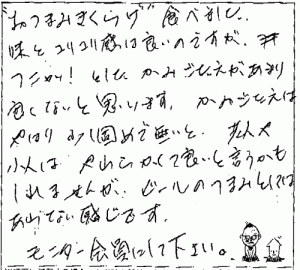 "おつまみきくらげ" 食べました。
味とコリコリ感は良いのですが、
フニャ!としたかみごたえがあまり
良くないと思います。かみごたえは
やはり少し固めで無いと。老人や
小人は やわらかくて良いと言うかも
しれませんが、ビールのつまみとしては
あじけない感じです。
モニター会員にして下さい。